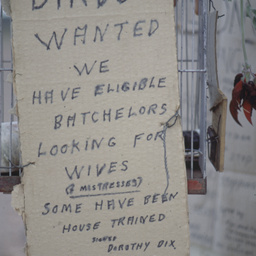 WANTED
WE
HAVE ELIGIBLE
BATCHELORS
LOOKING FOR
WIVES
(& MISTRESSES)
SOME HAVE BEEN
HOUSE TRAINED
SIGNED
DOROTHY DIX